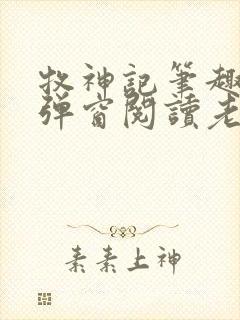 牧神記筆趣
彈窗閱讀老
素素上神